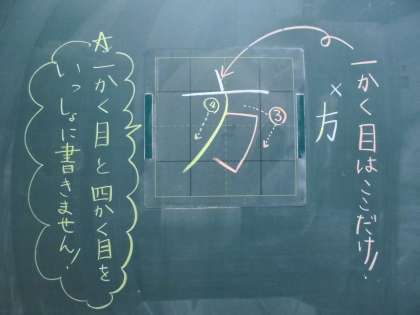 一かく目はここだけ!
×方
方
③
④
☆一かく目と四かく目を
いっしょに書きません!